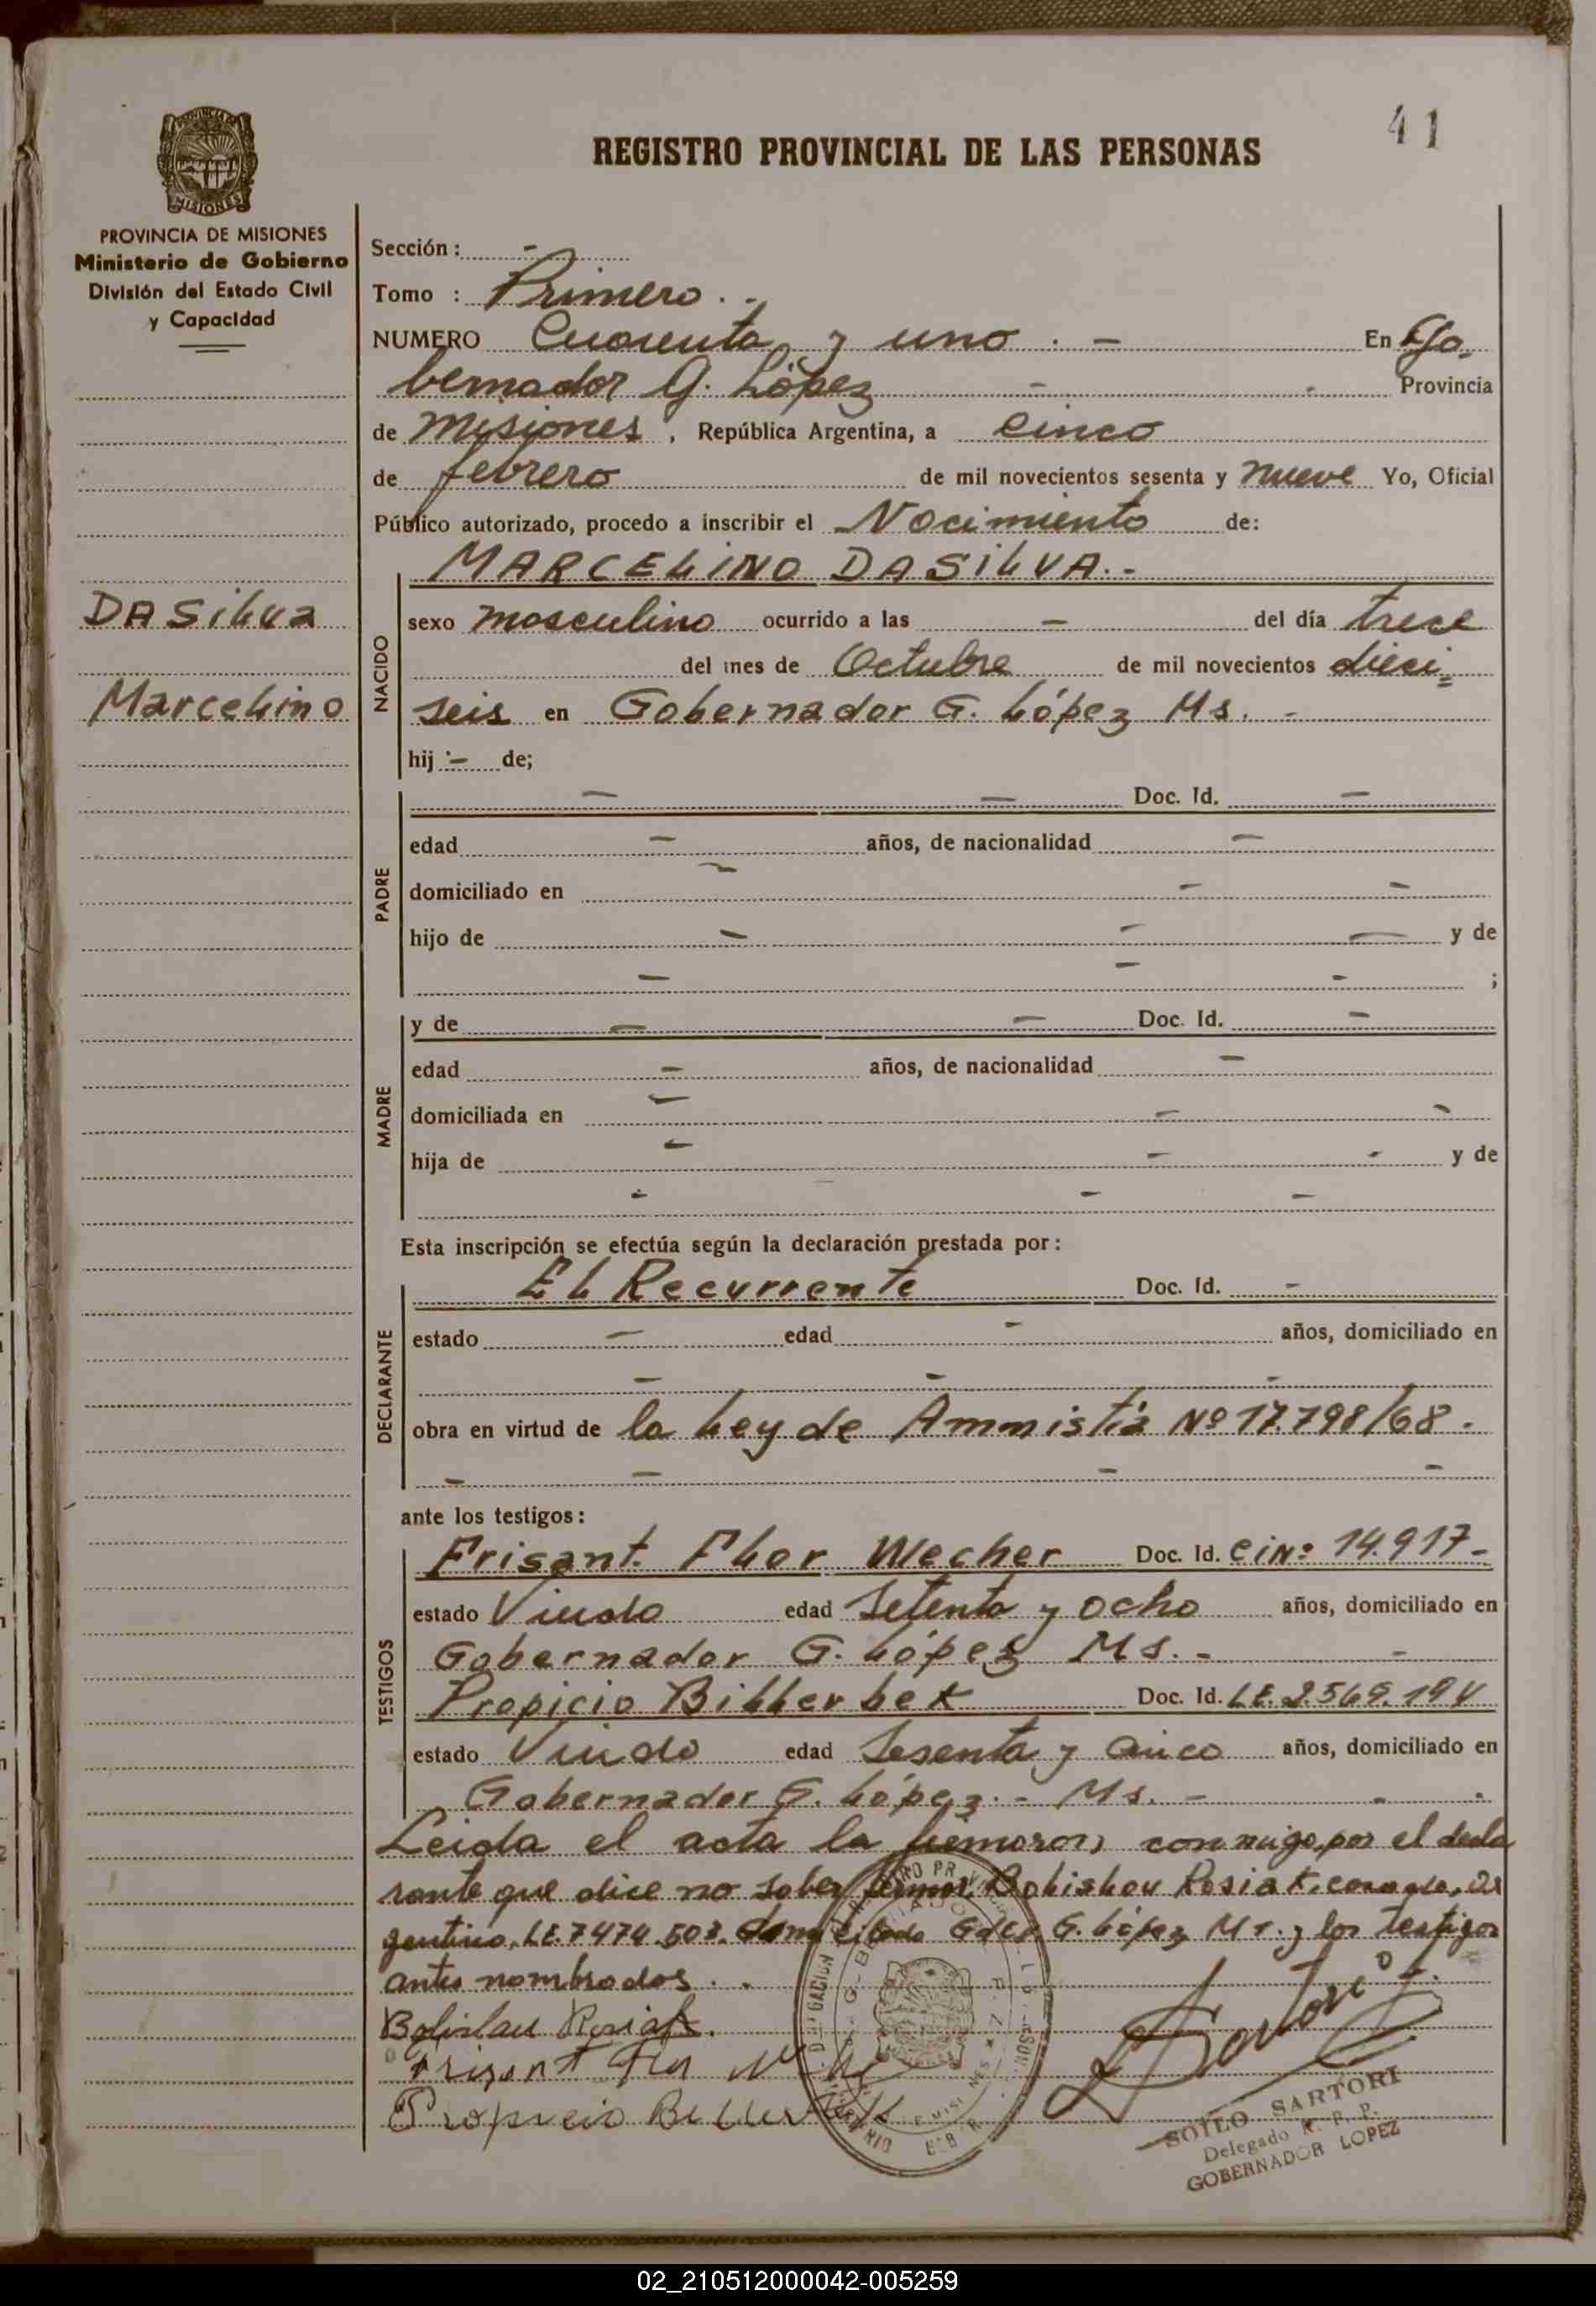 41
REGISTRO PROVINCIAL DE LAS PERSONAS
PROVINCIA DE MISIONES
Ministerio de Gobierno
División del Estado Civil
y Capacidad
Sección : -
Tomo : Primero . -
NUMERO Cuarenta y uno . - En Go
bernador G. López - - Provincia
de Misiones , República Argentina, a cinco
de febrero de mil novecientos sesenta y nueve Yo, Oficial
Público autorizado, procedo a inscribir el Nacimiento de:
MARCELINO DASILVA. -
DASilva
Marcelino
NACIDO
sexo masculino ocurrido a las - del día trece
del mes de Octubre de mil novecientos dieci=
seis en Gobernador G. López Ms. -
hij - de;
PADRE
- - Doc. Id. -
edad - años, de nacionalidad -
domiciliado en - - -
hijo de - - - y de
- - - ;
MADRE
y de - - Doc. Id. -
edad - años, de nacionalidad -
domiciliada en - - -
hija de - - - y de
- - -
Esta inscripción se efectúa según la declaración prestada por :
DECLARANTE
El Recurrente Doc. Id. -
estado - edad - años, domiciliado en
- - -
obra en virtud de la Ley de Ammistía Nº 17.798/68.
- - - -
ante los testigos :
TESTIGOS
Frisant. Flor Wecher Doc. Id. CiNº 14.917-
estado Viudo edad Setenta y ocho años, domiciliado en
Gobernador G. López Ms. - -
Propicio Billerbek Doc. Id. LE. 2.565.19
estado Viudo edad Sesenta y cinco años, domiciliado en
Gobernador G. López. - Ms. -
Leida el acta la firmaron conmigo, por el decla
rante que dice no saber firmar, Bolislau Rosiak, casado, ar
gentino, LE. 7474.503. domiciliado Gdor G. López Ms. y los testigos
antes nombrados . .
Bolislau Rosiak.
Frisant Flor
Propicio Billerbek
SOILO SARTORI
Delegado R. P. P.
GOBERNADOR LOPEZ
02_210512000042-005259